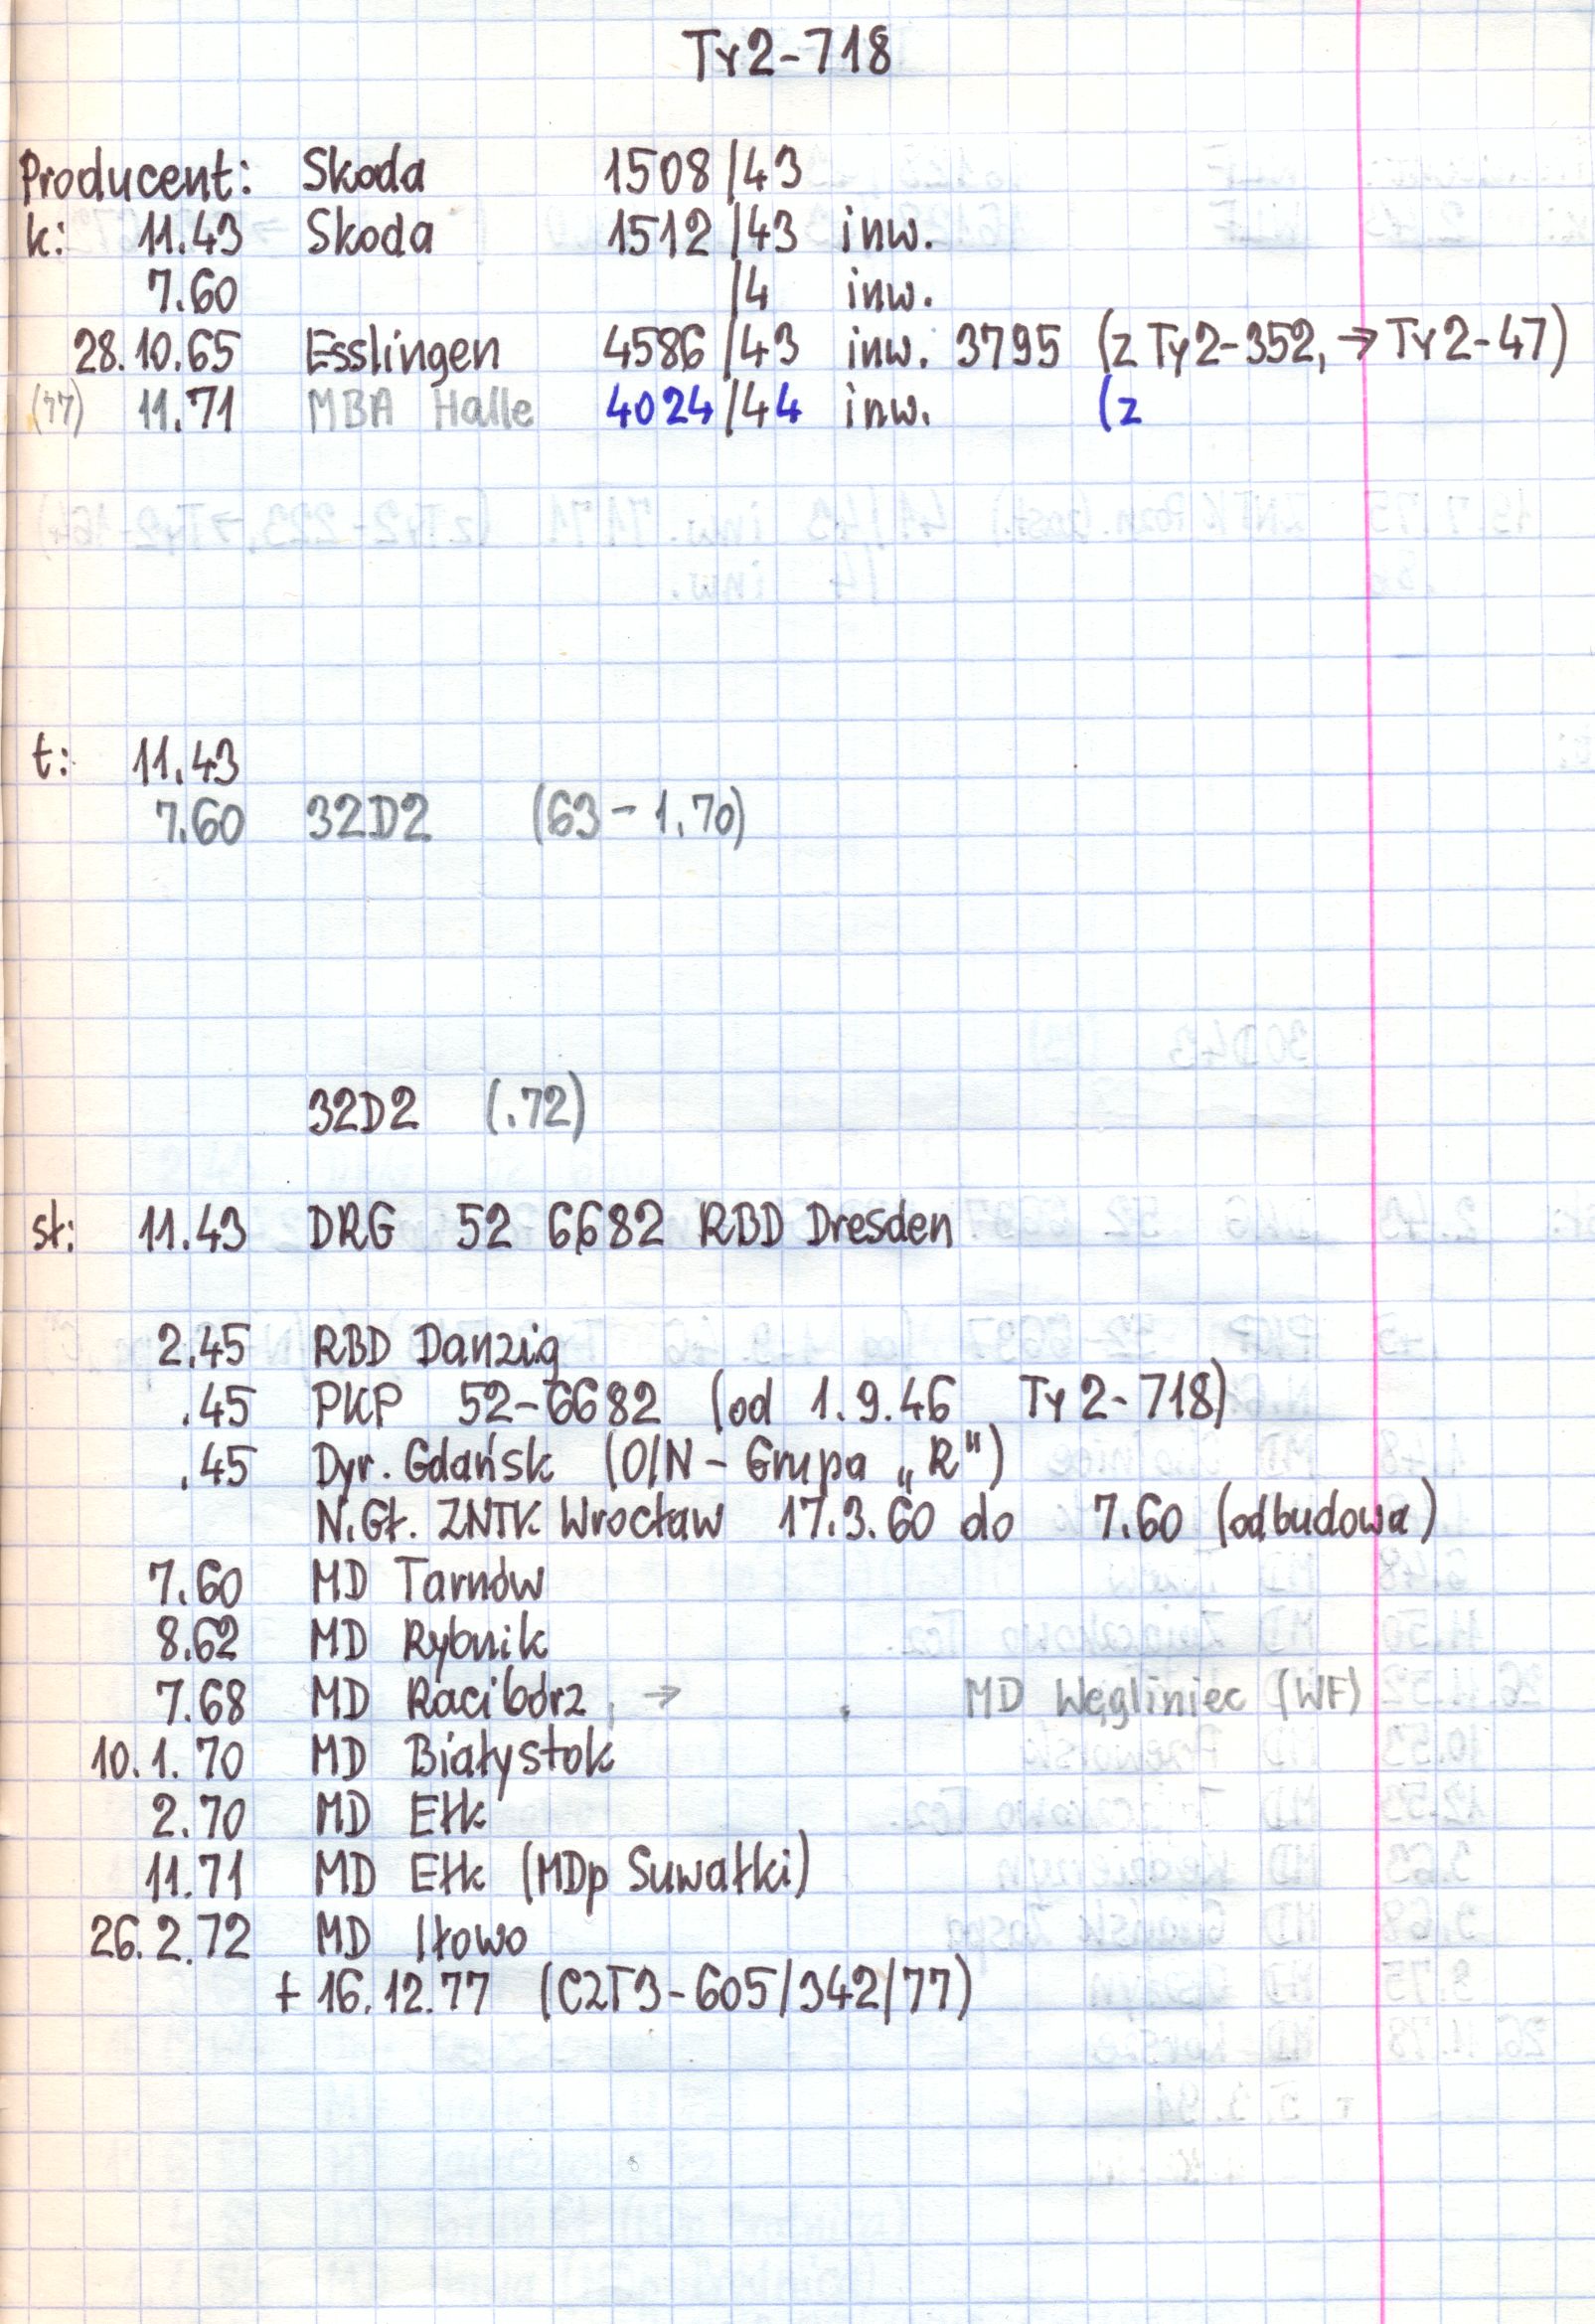 Ty2-718
Producent: Skoda 1508/43
k: 11.43 Skoda 1512/43 inw.
7.60 /4 inw.
28.10.65 Esslingen 4586/43 inw. 3795 (z Ty2-352, → Ty2-47)
(77) 11.71 MBA Halle 4024/44 inw. (z
t: 11.43
7.60 32D2 (63-1.70)
32D2 (.72)
st: 11.43 DRG 52 6682 RBD Dresden
2.45 RBD Danzig
.45 PKP 52-6682 (od 1.9.46 Ty2-718)
.45 Dyr. Gdańsk (O/N - Grupa „R")
N.Gł. ZNTK Wrocław 17.3.60 do 7.60 (odbudowa)
7.60 MD Tarnów
8.62 MD Rybnik
7.68 MD Racibórz, → . MD Węgliniec (WF)
10.1.70 MD Białystok
2.70 MD Ełk
11.71 MD Ełk (MDp Suwałki)
26.2.72 MD Iłowo
+ 16.12.77 (C2T3-605/342/77)